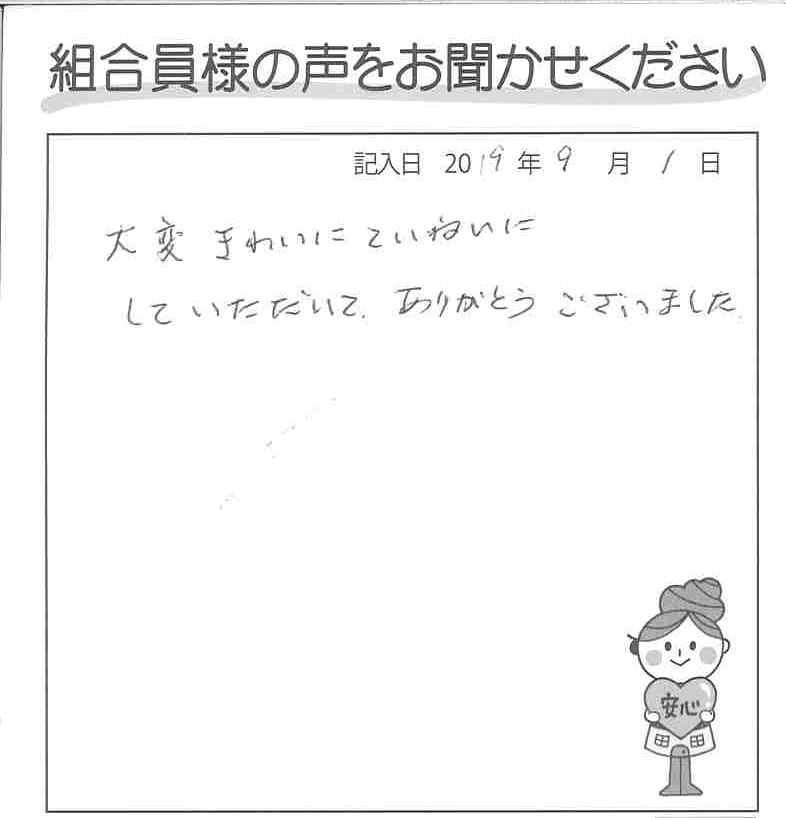 組合員様の声をお聞かせください
記入日 2019年9月1日
大変きれいにていねいに
していただいて、ありがとうございました。
安心